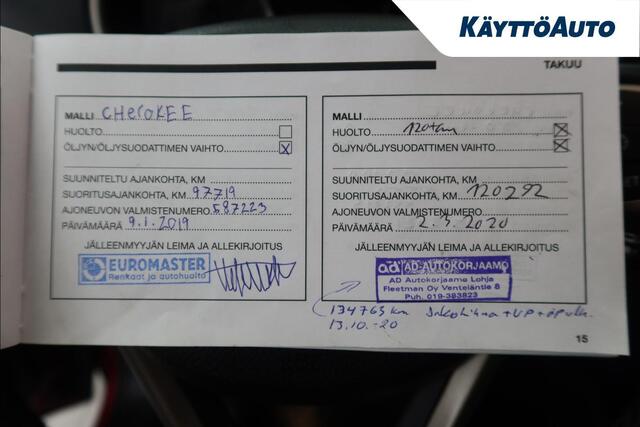 KÄYTTÖAUTO
TAKUU
MALLI CHEROKEE
HUOLTO
ÖLJYN/ÖLJYSUODATTIMEN VAIHTO X
SUUNNITELTU AJANKOHTA, KM
SUORITUSAJANKOHTA, KM 97719
AJONEUVON VALMISTENUMERO 587223
PÄIVÄMÄÄRÄ 9.1.2019
JÄLLEENMYYJÄN LEIMA JA ALLEKIRJOITUS
EUROMASTER
Renkaat ja autohuolto
MALLI
HUOLTO 120tkm X
ÖLJYN/ÖLJYSUODATTIMEN VAIHTO X
SUUNNITELTU AJANKOHTA, KM
SUORITUSAJANKOHTA, KM 120292
AJONEUVON VALMISTENUMERO
PÄIVÄMÄÄRÄ 2.3.2020
JÄLLEENMYYJÄN LEIMA JA ALLEKIRJOITUS
ad AD-AUTOKORJAAMO
AD Autokorjaamo Lohja
Fleetman Oy Venteläntie 8
Puh. 019-383823
134765 km Jakohihna + VP +
13.10.-20
15